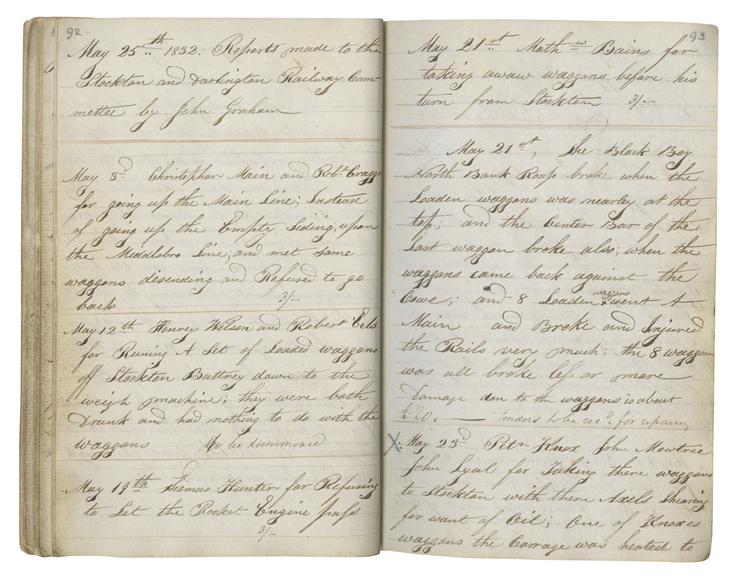 92
May 25th 1832. Reports made to the
Stockton and Darlington Railway Com-
mettee by John Graham
May 3d Christopher Main and Robt Cragge
for going up the Main Line; Instead
of going up the Empty Siding, upon
the Meddlsbro Line; and met some
waggons disending and Refused to go
back 3/-
May 12th Henry Wilson and Robert Eels
for Runing A Set of Loaded waggons
off Stockton Battrey down to the
weigh machine; they were both
Drunk and had nothing to do with the
waggons To be Summoned
May 19th Thomas Hunter for Refusing
to Let the Rocket Engine pass
3/-
93
May 21st Mathw Bains for
taking awaw waggons before his
turn from Stockton 3/-
May 21st, The Black Boy
North Bank Roap broke when the
Loaden waggons was nearley at the
top; and the Center Bar of the
Last waggon broke also; when the
waggons came back against the
Cowe; and 8 Loaden waggons went A
Main and Broke and Injured
the Rails very much; the 8 waggons
was all broke less or more
Damage don to the waggons is about
£20. — Tenders to be recd. for repairing
X May 23d Petr Knox John Mowtree
John Lyal for Taking there waggons
to Stockton with there Axels Shearing
for want of Oil; One of Knoxes
waggons the Carrage was heated to